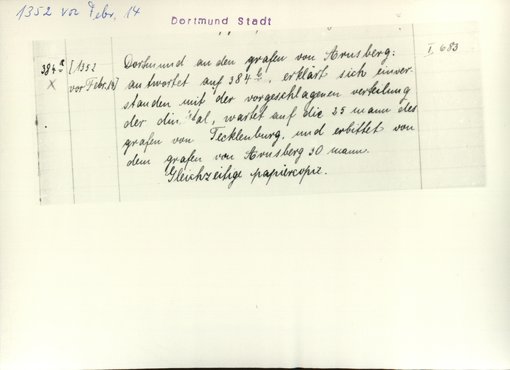 1352 vor Febr. 14
Dortmund Stadt
384a [1352 Dortmund an den grafen von Arnsberg: I 683
X vor Febr. 14] antwortet auf 384b, erklärt sich einver-
standen mit der vorgeschlagenen verteilung
der wartet auf die 25 mann des
grafen von Tecklenburg, und erbittet von
dem grafen von Arnsberg 30 mann.
Gleichzeitige papiercopie.